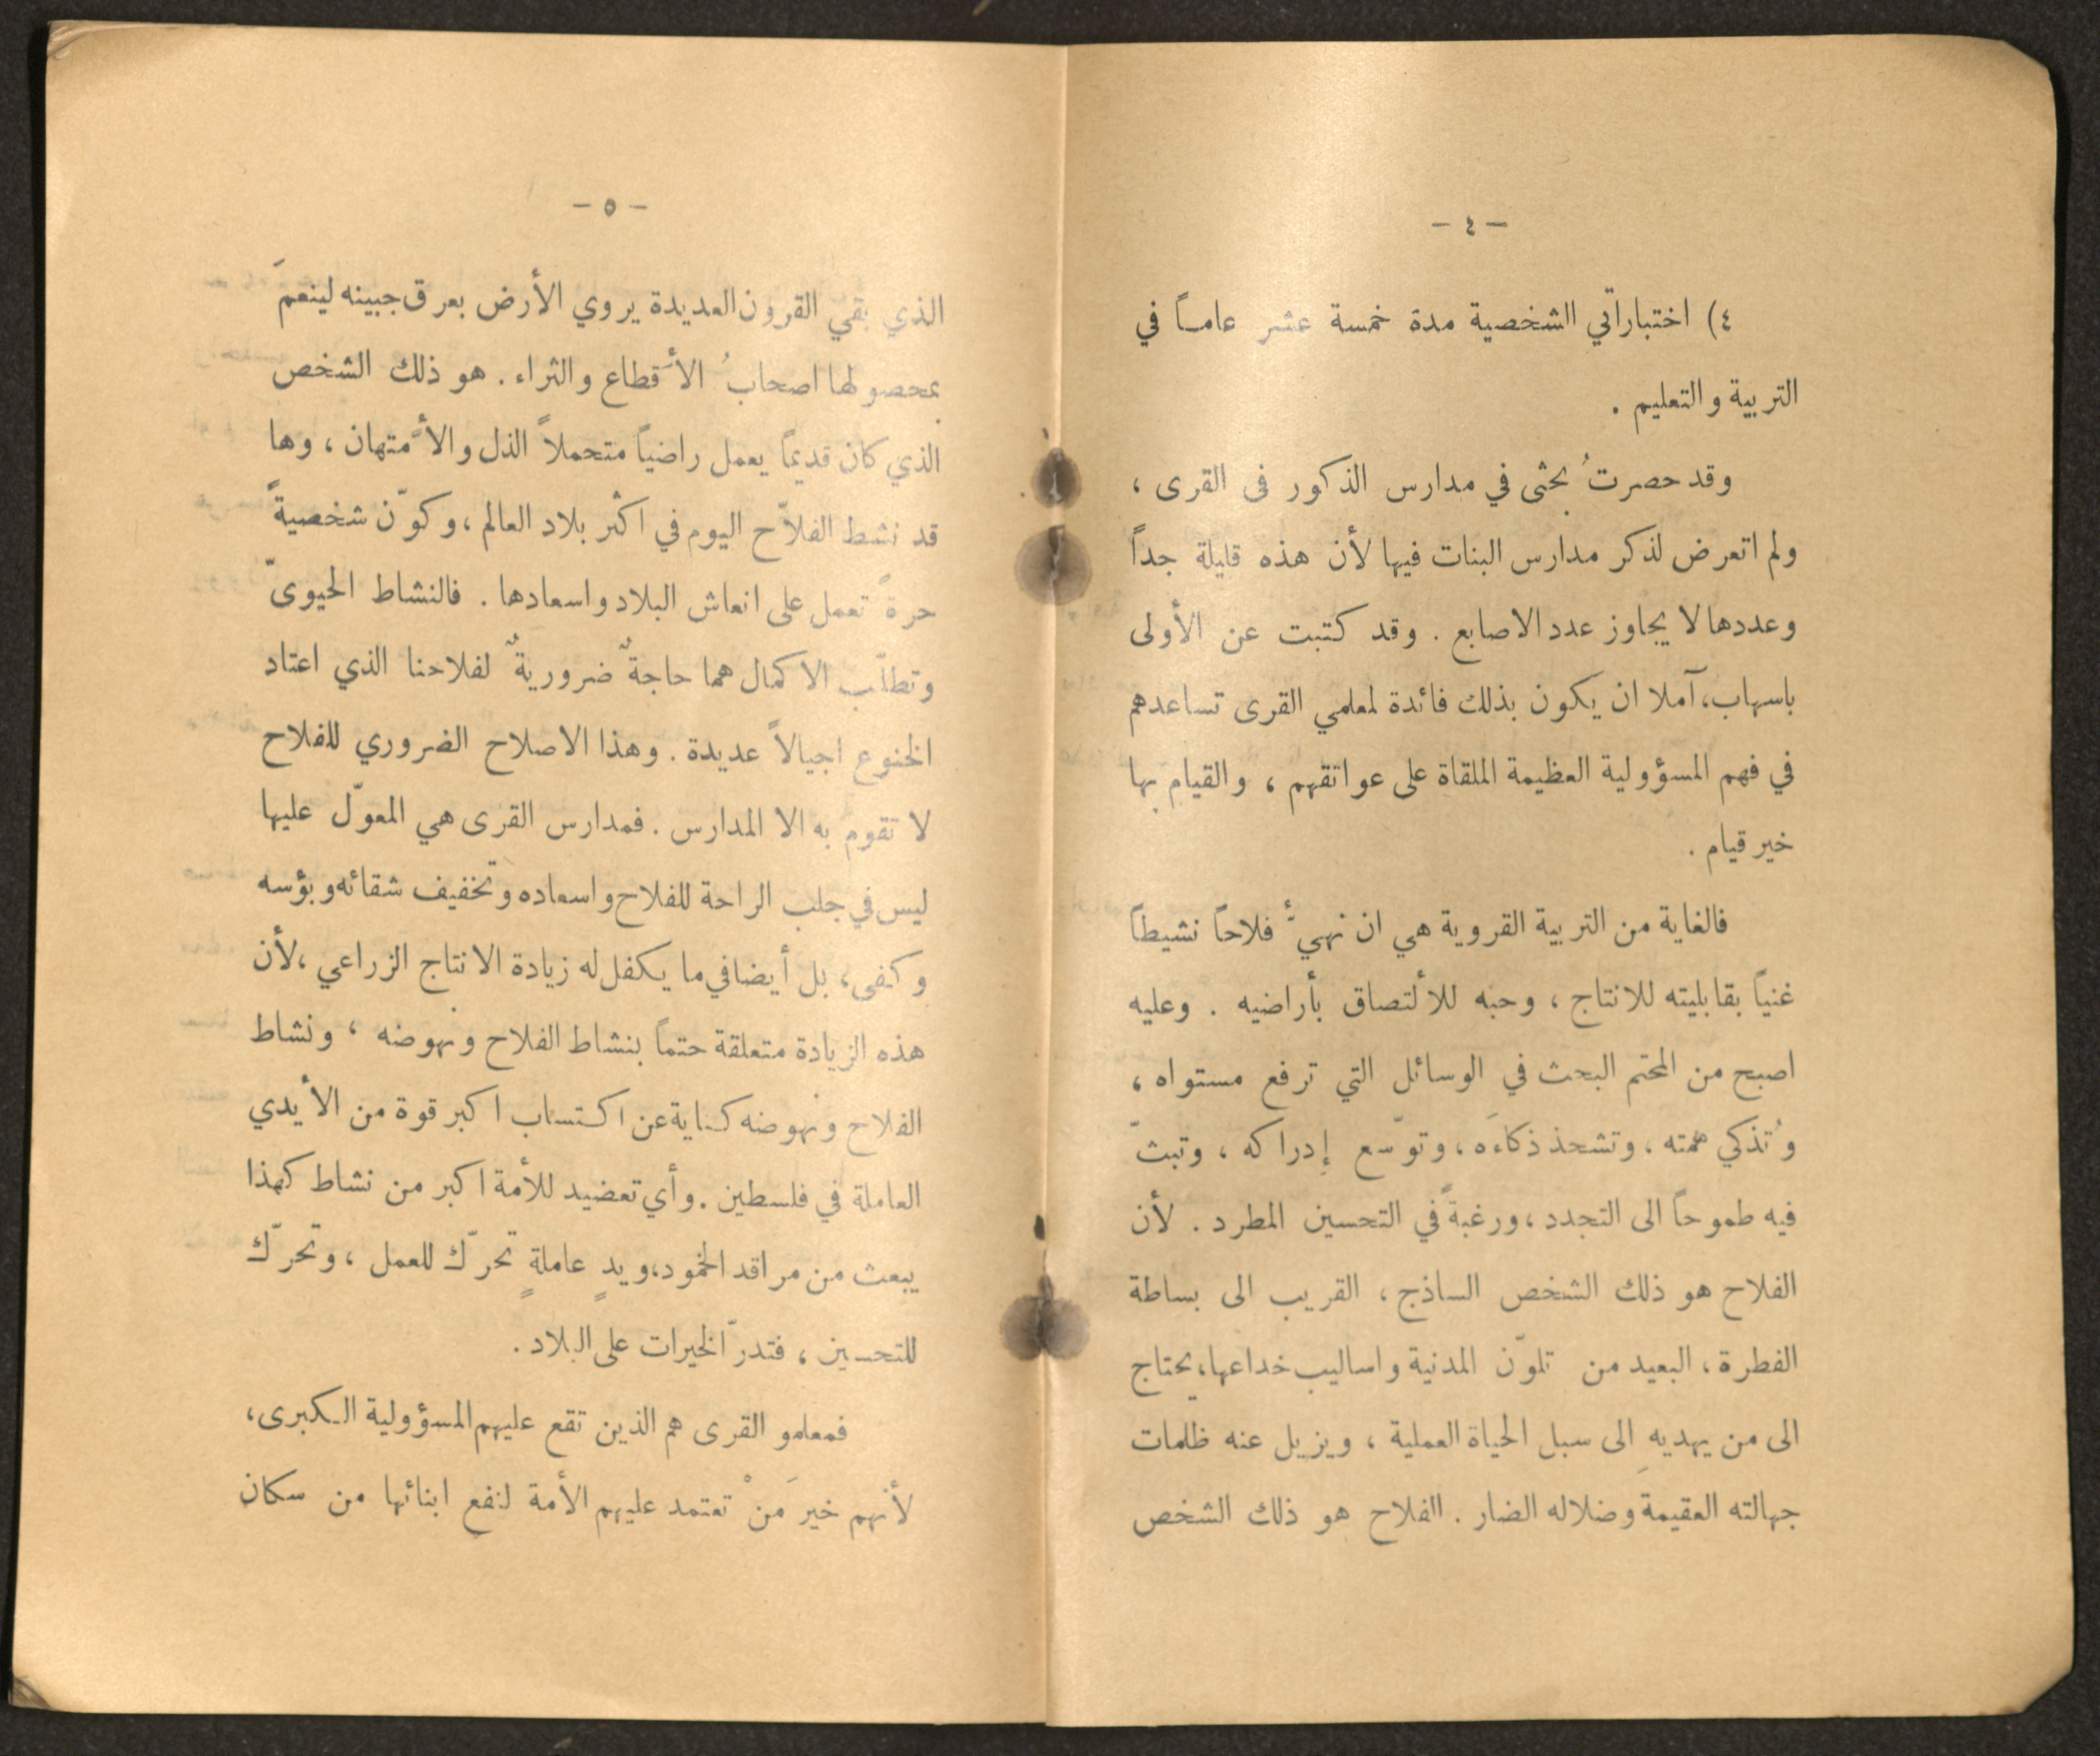 - ٤ -
٤) اختباراتي الشخصية مدة خمسة عشر عاماً في
التربية والتعليم .
وقد حصرتُ بحثي في مدارس الذكور في القرى ،
ولم اتعرض لذكر مدارس البنات فيها لأن هذه قليلة جداً
وعددها لا يجاوز عدد الاصابع . وقد كتبت عن الأولى
باسهاب، آملا ان يكون بذلك فائدة لمعلمي القرى تساعدهم
في فهم المسؤولية العظيمة الملقاة على عواتقهم ، والقيام بها
خير قيام .
فالغاية من التربية القروية هي ان نهيّأ فلاحاً نشيطاً
غنياً بقابليته للانتاج ، وحبه للألتصاق بأراضيه . وعليه
اصبح من المحتم البحث في الوسائل التي ترفع مستواه ،
وتُذكي همته ، وتشحذ ذكاءَه ، وتوسّع إدراكه ، وتبثّ
فيه طموحاً الى التجدد ، ورغبةً في التحسين المطرد . لأن
الفلاح هو ذلك الشخص الساذج ، القريب الى بساطة
الفطرة ، البعيد من تلوّن المدنية واساليب خداعها، يحتاج
الى من يهديهِ الى سبل الحياة العملية ، ويزيل عنه ظلمات
جهالته العقيمة وضلاله الضار . الفلاح هو ذلك الشخص
- ٥ -
الذي بقي القرون العديدة يروي الأرض بعرق جبينه لينعمَ
بمحصولها اصحابُ الأقطاع والثراء . هو ذلك الشخص
الذي كان قديماً يعمل راضياً متحملاً الذل والأمتهان ، وها
قد نشط الفلاّح اليوم في اكثر بلاد العالم ، وكوّن شخصيةً
حرةً تعمل على انعاش البلاد واسعادها . فالنشاط الحيويّ
وتطلّب الاكمال هما حاجةٌ ضروريةٌ لفلاحنا الذي اعتاد
الخنوع اجيالاً عديدة . وهذا الاصلاح الضروري للفلاح
لا تقوم به الا المدارس . فمدارس القرى هي المعوّل عليها
ليس في جلب الراحة للفلاح واسعاده وتخفيف شقائه وبؤسه
وكفى ، بل أيضا في ما يكفل له زيادة الانتاج الزراعي ، لأن
هذه الزيادة متعلقة حتماً بنشاط الفلاح ونهوضه ، ونشاط
الفلاح ونهوضه كناية عن اكتساب اكبر قوة من الأيدي
العاملة في فلسطين . وأي تعضيد للأمة اكبر من نشاط كهذا
يبعث من مراقد الخمود، ويدٍ عاملةٍ تحرّك للعمل ، وتحرّك
للتحسين ، فتدرّ الخيرات على البلاد .
فمعلمو القرى هم الذين تقع عليهم المسؤولية الكبرى ،
لأنهم خيرَ مَنْ تعتمد عليهم الأمة لنفع ابنائها من سكان